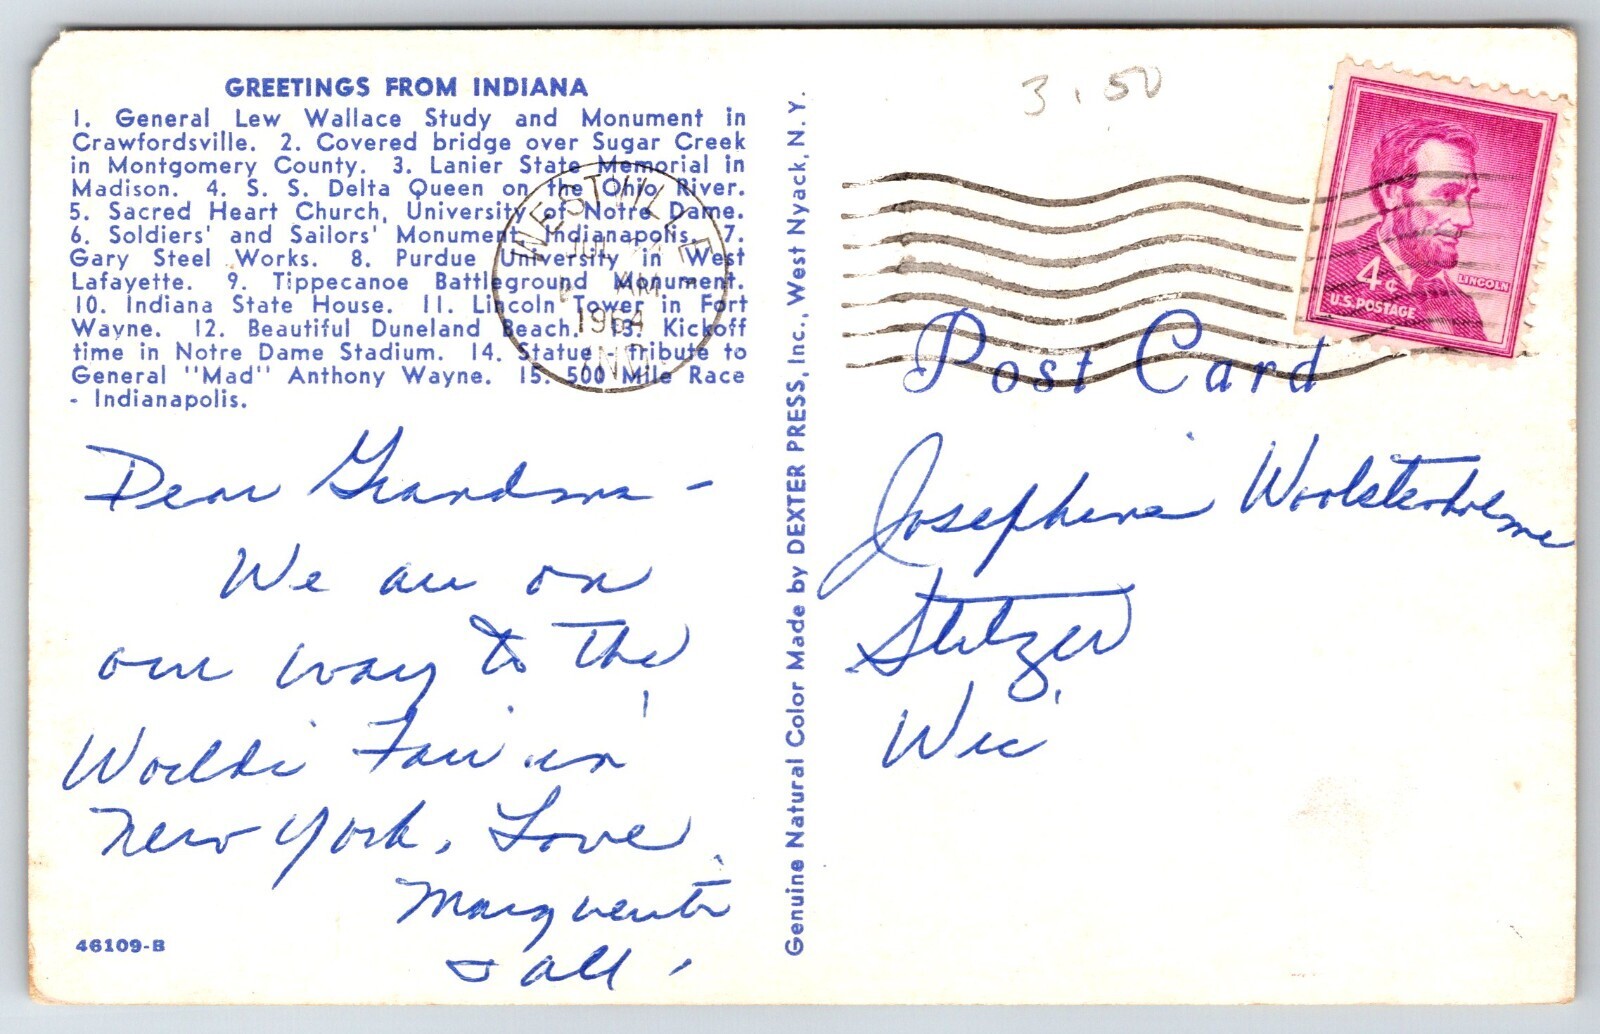 GREETINGS FROM INDIANA
1. General Lew Wallace Study and Monument in
Crawfordsville. 2. Covered bridge over Sugar Creek
in Montgomery County. 3. Lanier State Memorial in
Madison. 4. S. S. Delta Queen on the Ohio River.
5. Sacred Heart Church, University of Notre Dame.
6. Soldiers' and Sailors' Monument, Indianapolis. 7.
Gary Steel Works. 8. Purdue University in West
Lafayette. 9. Tippecanoe Battleground Monument.
10. Indiana State House. 11. Lincoln Tower in Fort
Wayne. 12. Beautiful Duneland Beach. 13. Kickoff
time in Notre Dame Stadium. 14. Statue - tribute to
General "Mad" Anthony Wayne. 15. 500 Mile Race
- Indianapolis.
Dear Grandma -
We are on
our way to the
World's Fair in
New York. Love
Marguerite
& all.
46109-B
Genuine Natural Color Made by DEXTER PRESS, Inc., West Nyack, N. Y.
WESTVILLE
AM
1964
IND.
3.50
4¢
LINCOLN
U.S. POSTAGE
Post Card
Josephine Woolstenholme
Stitzer
Wic